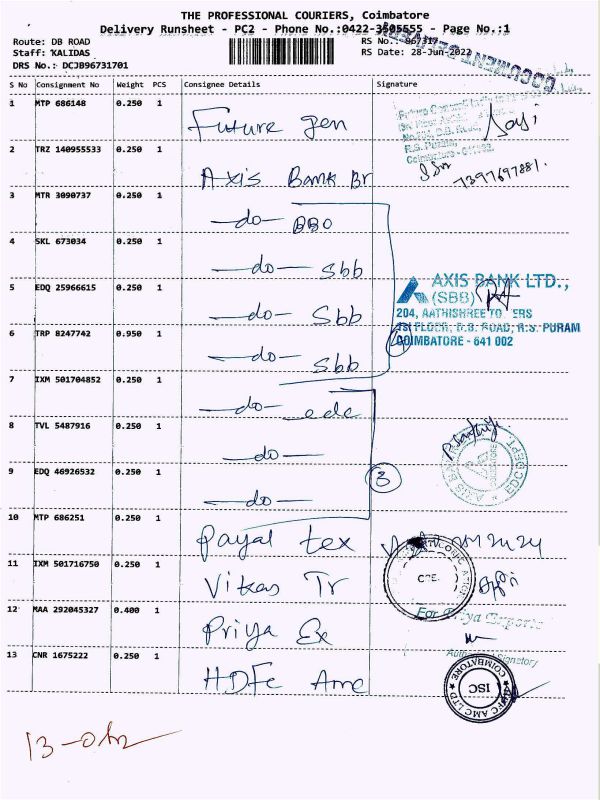 THE PROFESSIONAL COURIERS, Coimbatore
Delivery Runsheet - PC2 - Phone No.:0422-3505555 - Page No.:1
Route: DB ROAD
Staff: KALIDAS
DRS No.: DCJB96731701
RS No.: 967317
RS Date: 28-Jun-2022
S No Consignment No Weight PCS Consignee Details Signature
1 MTP 686148 0.250 1 Future gen
2 TRZ 140955533 0.250 1 Axis Bank Br
7397697881.
3 MTR 3090737 0.250 1 —do— BBO
4 SKL 673034 0.250 1 —do— Sbb
5 EDQ 25966615 0.250 1 —do— Sbb
AXIS BANK LTD.,
(SBB)
204, AATHISHREE TO ERS
1ST FLOOR, D.B. ROAD, R.S. PURAM
COIMBATORE - 641 002
6 TRP 8247742 0.950 1 —do— Sbb
7 IXM 501704852 0.250 1 —do— edc
8 TVL 5487916 0.250 1 —do—
9 EDQ 46926532 0.250 1 —do—
3
AXIS BANK
EDCG DEPT.
10 MTP 686251 0.250 1 Payal tex
11 IXM 501716750 0.250 1 Vikas Tr
CBE
12 MAA 292045327 0.400 1 Priya Ex
For Priya Exports
Authorised Signatory
13 CNR 1675222 0.250 1 HDFC Amc
HDFC AMC LTD
COIMBATORE
ISC